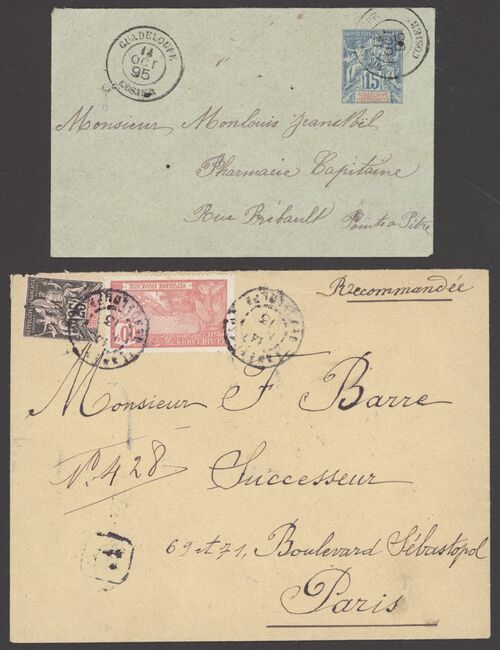 GUADELOUPE
14
OCT
95
GOSIER
15
Monsieur Monlouis Jeane Noël
Pharmacie Capitaine
Rue Frébault Pointe a Pitre
Recommandée
REPUBLIQUE FRANÇAISE
10
Monsieur F Barre
N. 428
Successeur
69 et 71, Boulevard Sébastopol
Paris